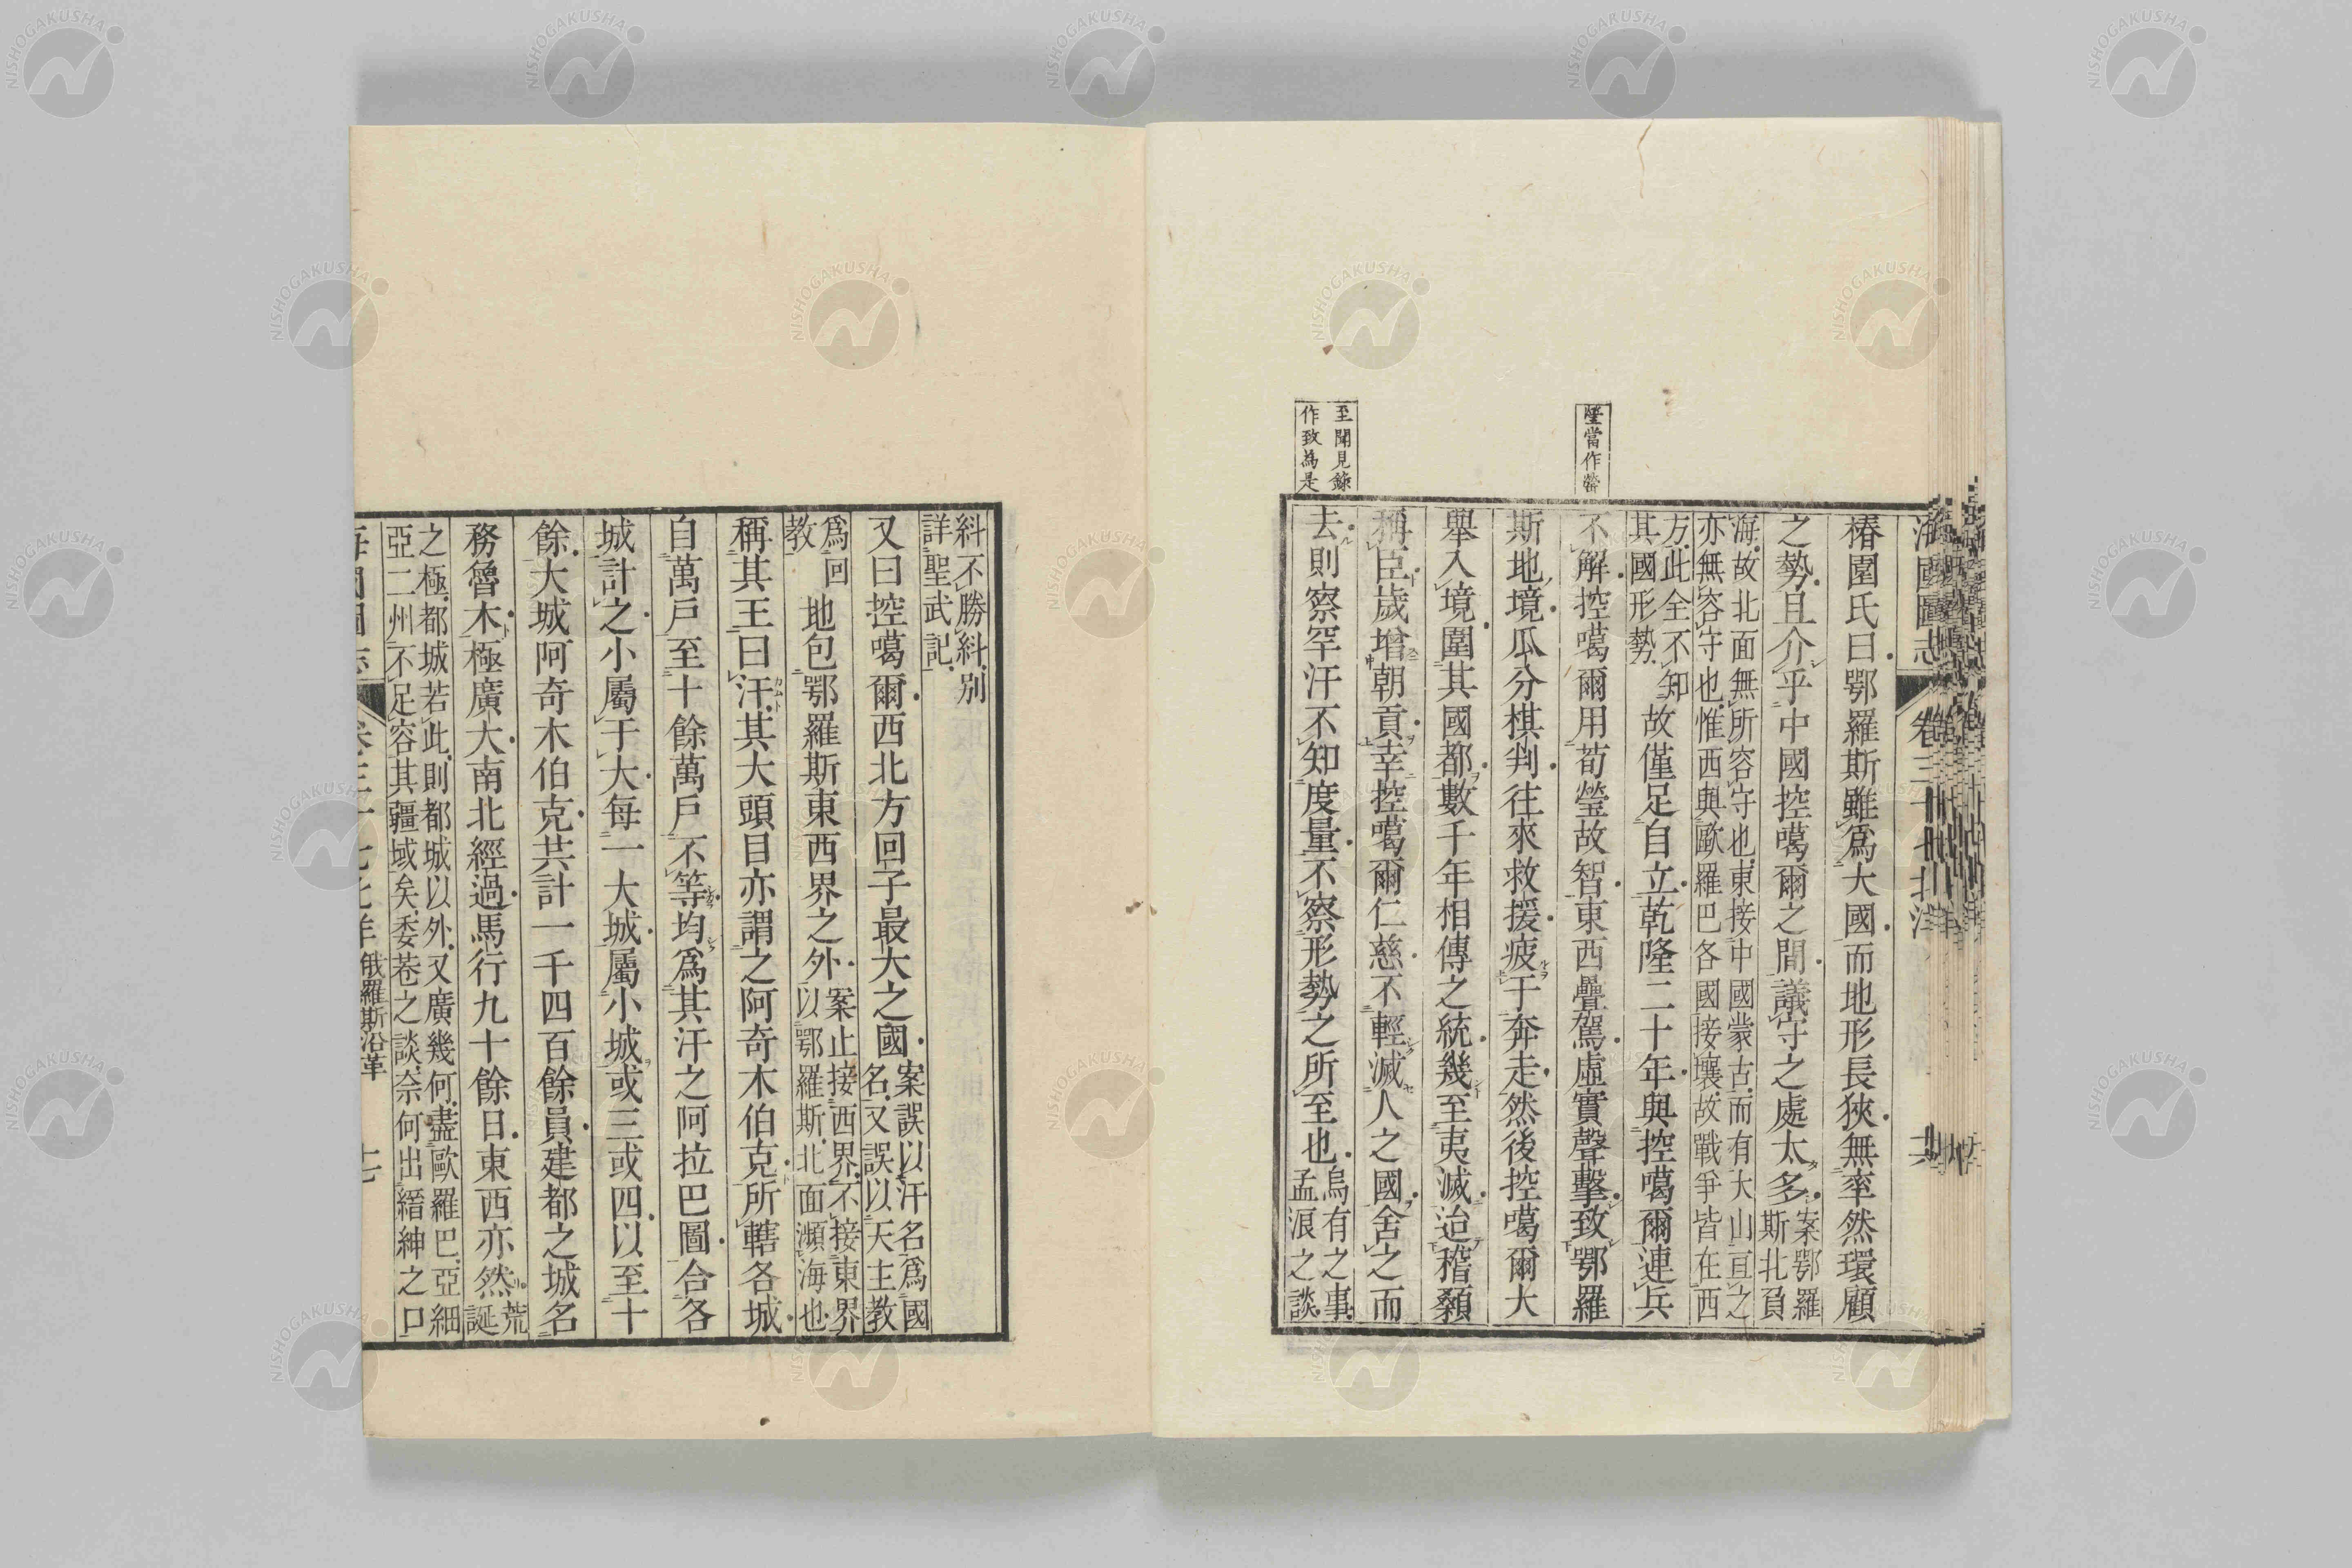 海國圖志 卷三十七 北洋
椿園氏曰鄂羅斯雖爲大國而地形長狹無率然環顧
之勢且介乎中國控噶爾之間議守之處太多案鄂羅斯北負
海故北面無所容守也東接中國蒙古而有大山亘之
亦無容守也惟西與歐羅巴各國接壤故戰爭皆在西
方此全不知其國形勢故僅足自立乾隆二十年與控噶爾連兵
不解控噶爾用荀瑩故智東西疊駕虛實聲擊致鄂羅
斯地境瓜分棋判往來救援疲于奔走然後控噶爾大
舉入境圍其國都數千年相傳之統幾至夷滅迨稽顙
稱臣歲增朝貢幸控噶爾仁慈不輕滅人之國舍之而
去則察罕汗不知度量不察形勢之所至也烏有之事孟浪之談
瑩當作罃
至聞見錄
作致為是
糾不勝糾別
詳聖武記
又曰控噶爾西北方回子最大之國案誤以汗名爲國名又誤以天主教
爲回教地包鄂羅斯東西界之外案止接西界不接東界以鄂羅斯北面瀕海也
稱其王曰汗其大頭目亦謂之阿奇木伯克所轄各城
自萬戶至十餘萬戶不等均爲其汗之阿拉巴圖合各
城計之小屬于大每一大城屬小城或三或四以至十
餘大城阿奇木伯克共計一千四百餘員建都之城名
務魯木極廣大南北經過馬行九十餘日東西亦然荒誕
之極都城若此則都城以外又廣幾何盡歐羅巴亞細
亞二州不足容其疆域矣委巷之談奈何出縉紳之口
俄羅斯沿革
NISHOGAKUSHA